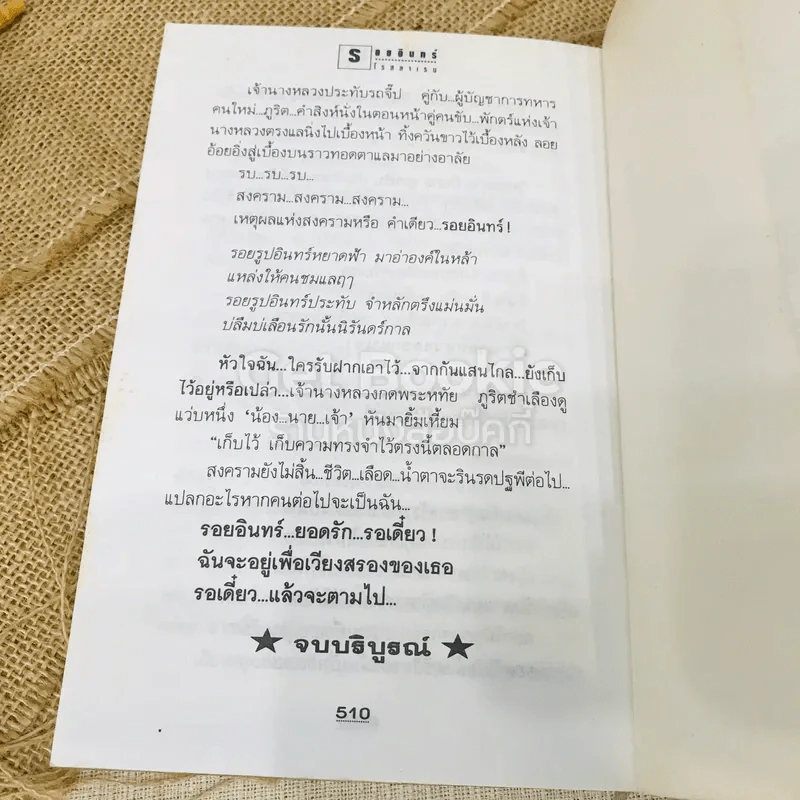 รอยอินทร์
โรสลาเรน
เจ้านางหลวงประทับรถจี๊ป คู่กับ...ผู้บัญชาการทหาร
คนใหม่...ภูริต...คำสิงห์นั่งในตอนหน้าคู่คนขับ...พักตร์แห่งเจ้า
นางหลวงตรงแลนิ่งไปเบื้องหน้า ทิ้งควันขาวไว้เบื้องหลัง ลอย
อ้อยอิ่งสู่เบื้องบนราวทอดตาแลมาอย่างอาลัย
รบ...รบ...รบ...
สงคราม...สงคราม...สงคราม...
เหตุผลแห่งสงครามหรือ คำเดียว...รอยอินทร์!
รอยรูปอินทร์หยาดฟ้า มาอ่าองค์ในหล้า
แหล่งให้คนชมแลฤๅ
รอยรูปอินทร์ประทับ จำหลักตรึงแม่นมั่น
บ่ลืมบ่เลือนรักนั้นนิรันดร์กาล
หัวใจฉัน...ใครรับฝากเอาไว้...จากกันแสนไกล...ยังเก็บ
ไว้อยู่หรือเปล่า...เจ้านางหลวงกดพระหทัย ภูริตชำเลืองดู
แว่บหนึ่ง ‘น้อง...นาย...เจ้า’ หันมายิ้มเหี้ยม
“เก็บไว้ เก็บความทรงจำไว้ตรงนี้ตลอดกาล”
สงครามยังไม่สิ้น...ชีวิต...เลือด...น้ำตาจะรินรดปฐพีต่อไป...
แปลกอะไรหากคนต่อไปจะเป็นฉัน...
รอยอินทร์...ยอดรัก...รอเดี๋ยว!
ฉันจะอยู่เพื่อเวียงสรองของเธอ
รอเดี๋ยว...แล้วจะตามไป...
★ จบบริบูรณ์ ★
510
Get Bookie
ร้านหนังสือบุ๊คกี้